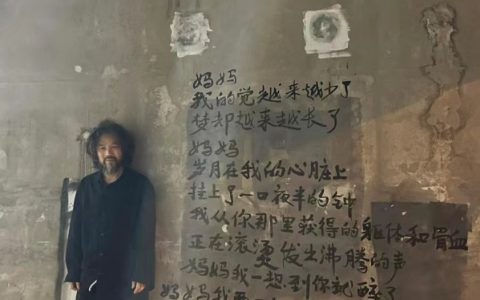 妈妈
我的觉越来越少了
梦却越来越长了
妈妈
岁月在我的心脏上
挂上了一口夜半的钟
我从你那里获得的躯体和骨血
正在滚烫发出沸腾的声
妈妈我一想到你就了
妈妈我